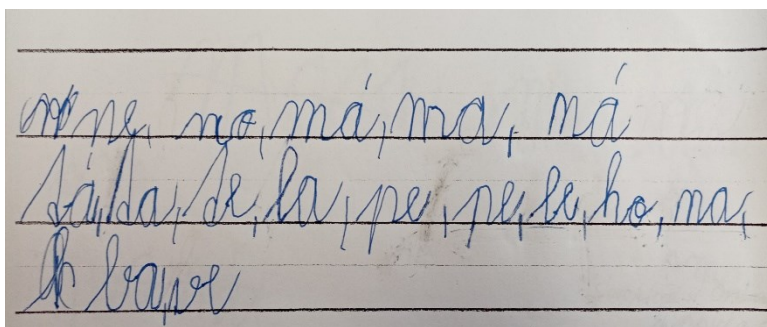 ne, no, má, ma, ná
Sá, Sa, Se, la, pe, pe, le, ho, na,
ba, ve